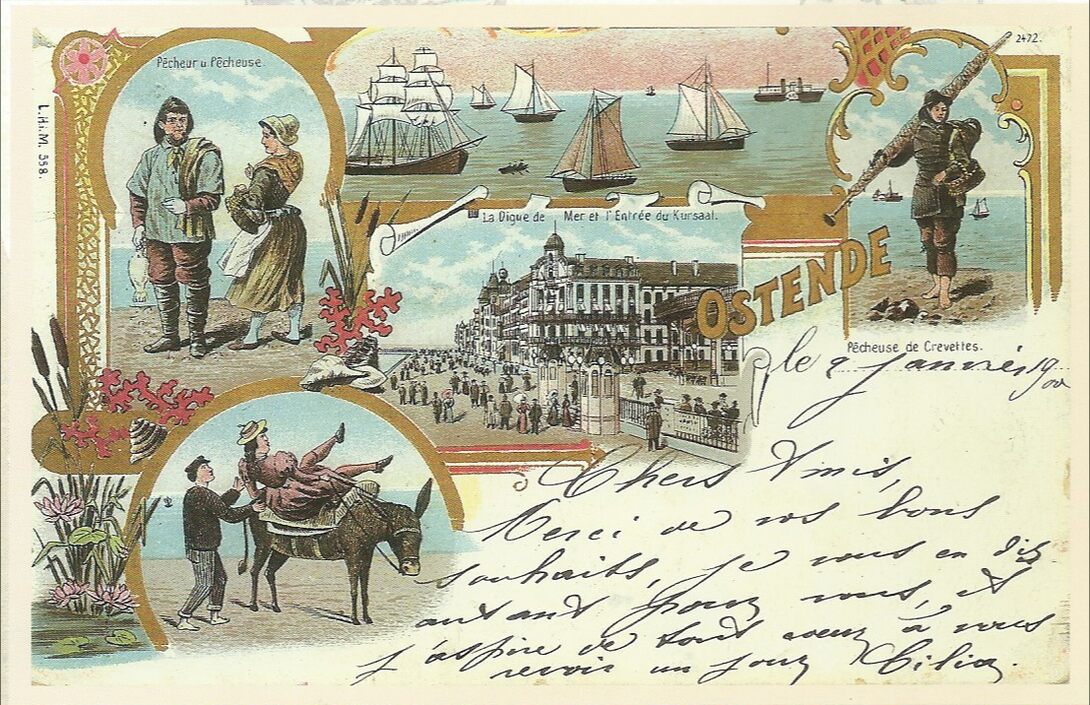 2472.
Pêcheur u Pêcheuse.
L.H.i.M. 358.
La Digue de Mer et l'Entrée du Kursaal.
OSTENDE
Pêcheuse de Crevettes.
le 2 janvier 1900
Chers Amis,
Merci de vos bons
souhaits, je vous en dis
autant pour vous, et
j'aspire de tout coeur à vous
revoir un jour